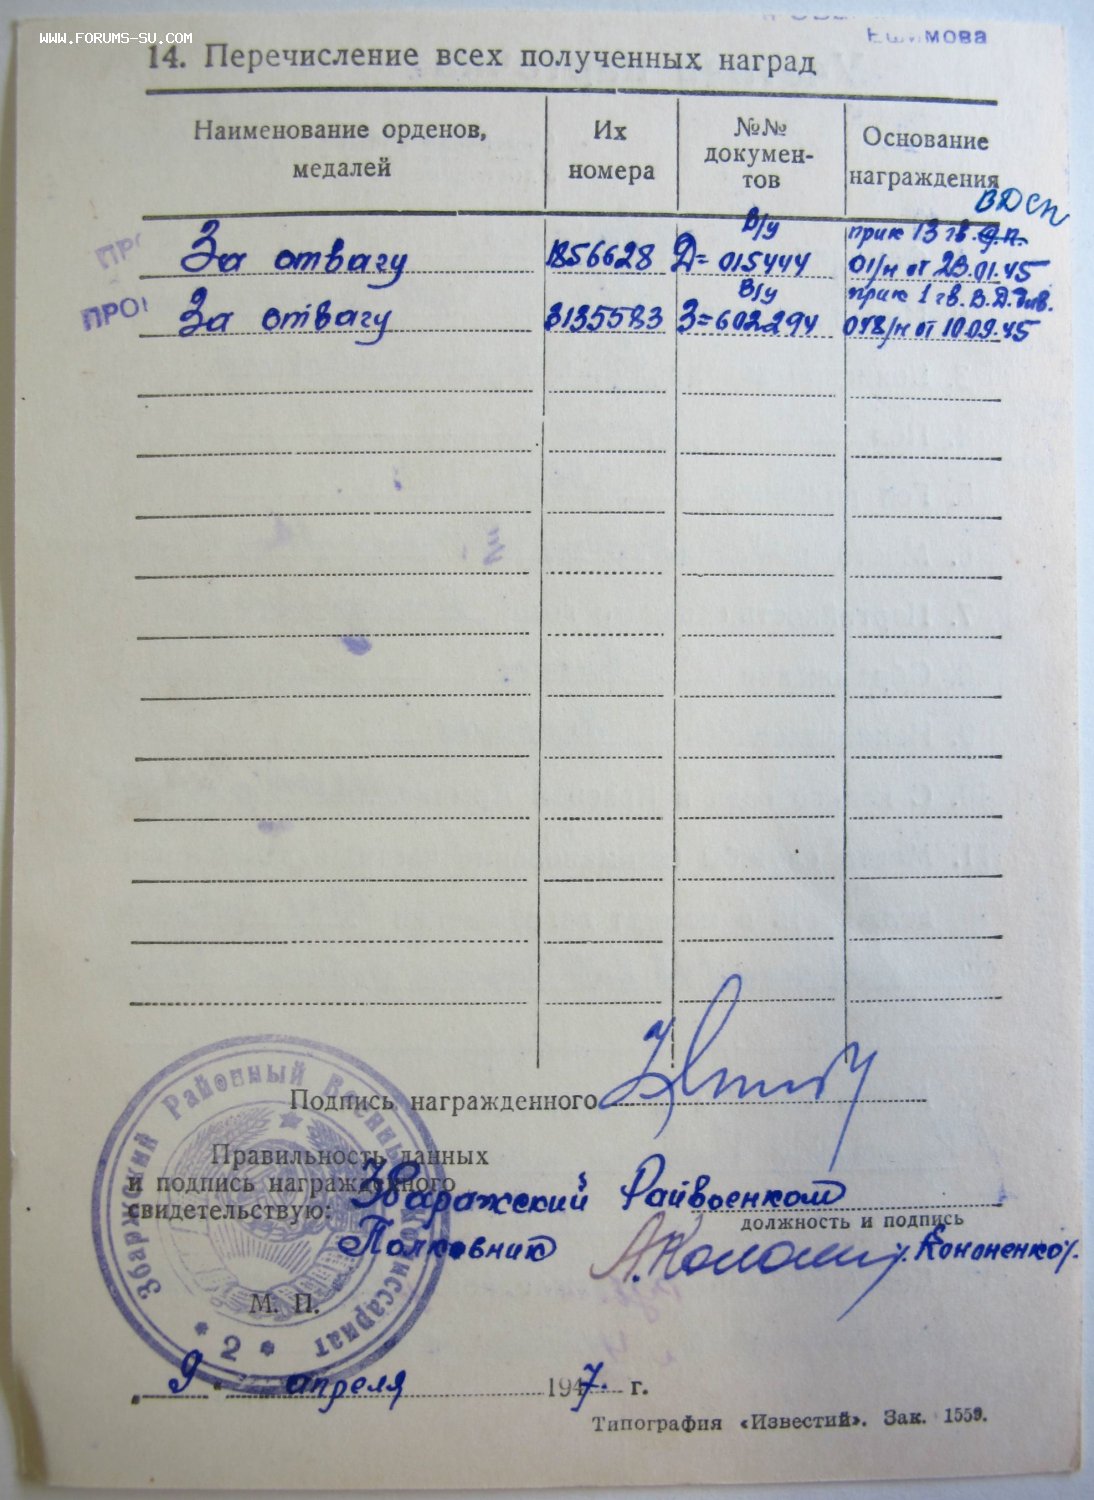 WWW.FORUMS-SU.COM
Ешимова
14. Перечисление всех полученных наград
Наименование орденов, медалей
Их номера
№№ докумен-тов
Основание награждения
ВДСп
В/у
прик 13 гв. д.п.
За отвагу 1856628 Д= 015444 01/н от 23.01.45
В/у
прик 1 гв. В.Д.див.
За отвагу 3135583 З=602294 078/н от 10.09.45
ПРО
ПРО
Подпись награжденного
Правильность данных
и подпись награжденного
свидетельствую: Збаражский Райвоенком
должность и подпись
Полковник А.Кононенко /. Кононенко/.
М. П.
Збаржский Районный Военный Комиссариат
* 2 *
„ 9 “ апреля 1947. г.
Типография «Известий». Зак. 1559.